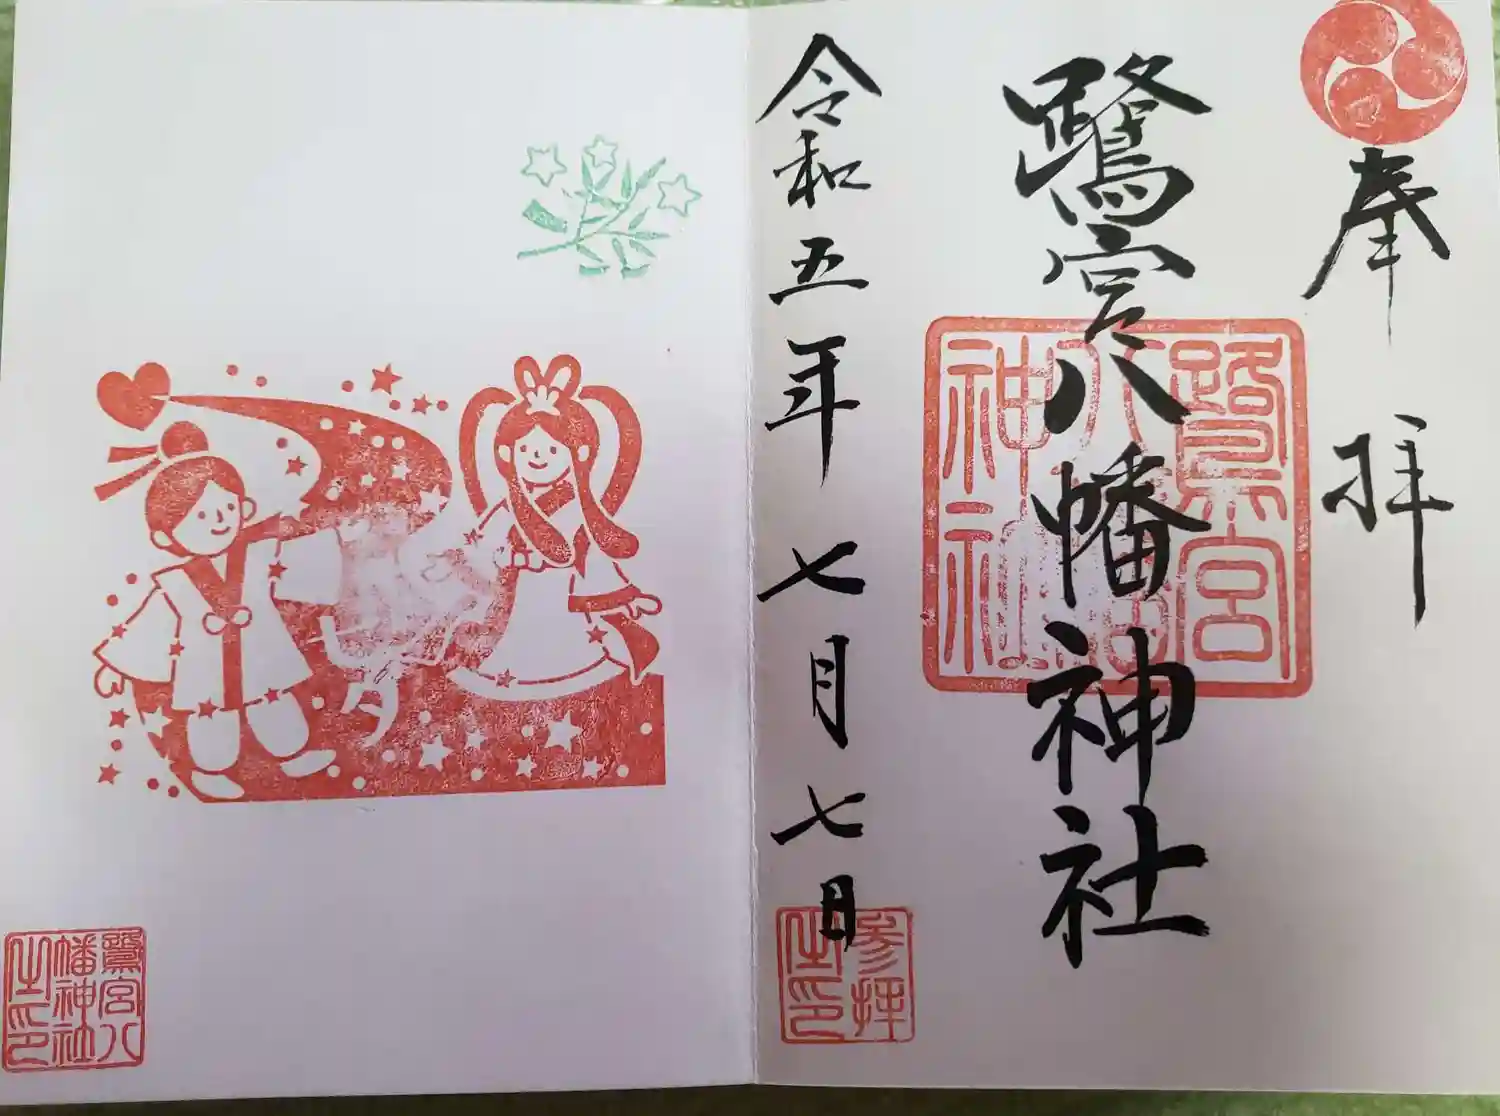 奉拝
鷺宮八幡神社
鷺宮
八幡
神社
令和五年七月七日
参拝
之印
七夕
鷺宮八
幡神社
之印